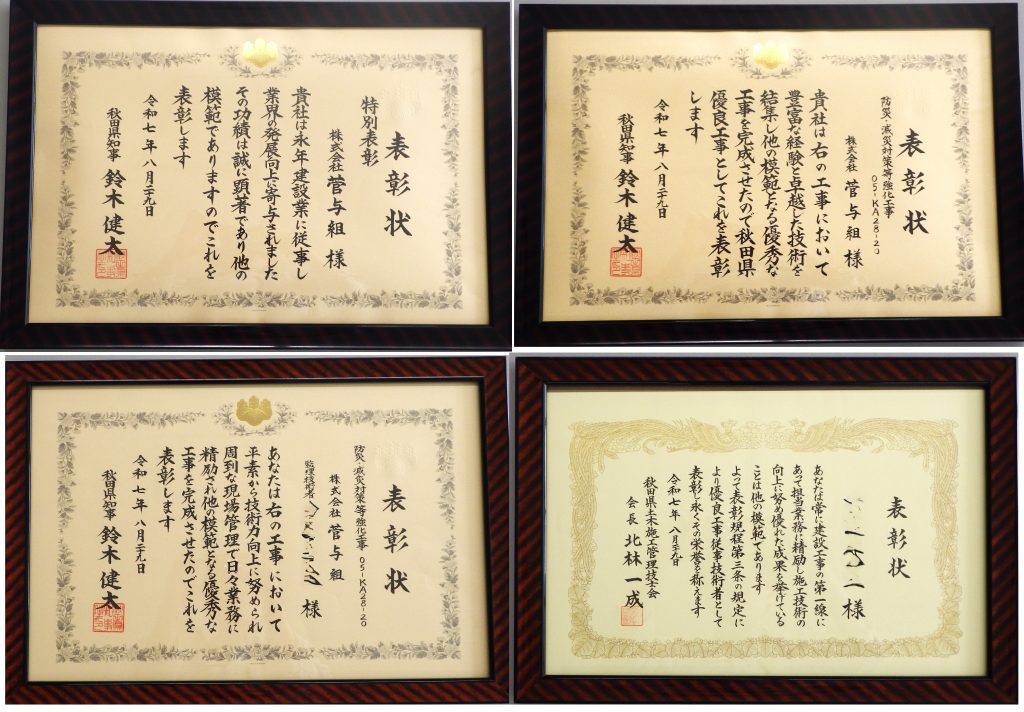 表彰状
特別表彰
株式会社 菅与組 様
貴社は永年建設業に従事し
業界の発展向上に寄与されました
その功績は誠に顕著であり他の
模範でありますのでこれを
表彰します
令和七年八月二十九日
秋田県知事 鈴木健太
表彰状
防災・減災対策等強化工事
05-KA28-20
株式会社 菅与組 様
貴社は右の工事において
豊富な経験と卓越した技術を
結集し他の模範となる優秀な
工事を完成させたので秋田県
優良工事としてこれを表彰
します
令和七年八月二十九日
秋田県知事 鈴木健太
表彰状
防災・減災対策等強化工事 05-KA28-20
株式会社 菅与組
監理技術者 様
あなたは右の工事において
平素から技術力向上に努められ
周到な現場管理で日々業務に
精励され他の模範となる優秀な
工事を完成させたのでこれを
表彰します
令和七年八月二十九日
秋田県知事 鈴木健太
表彰状
様
あなたは常に建設工事の第一線に
あって担当業務に精励し施工技術の
向上に努め優れた成果を挙げている
ことは他の模範であります
よって表彰規程第三条の規定に
より優良工事従事技術者として
表彰し永くその栄誉を称えます
令和七年八月二十九日
秋田県土木施工管理技士会
会長 北林一成